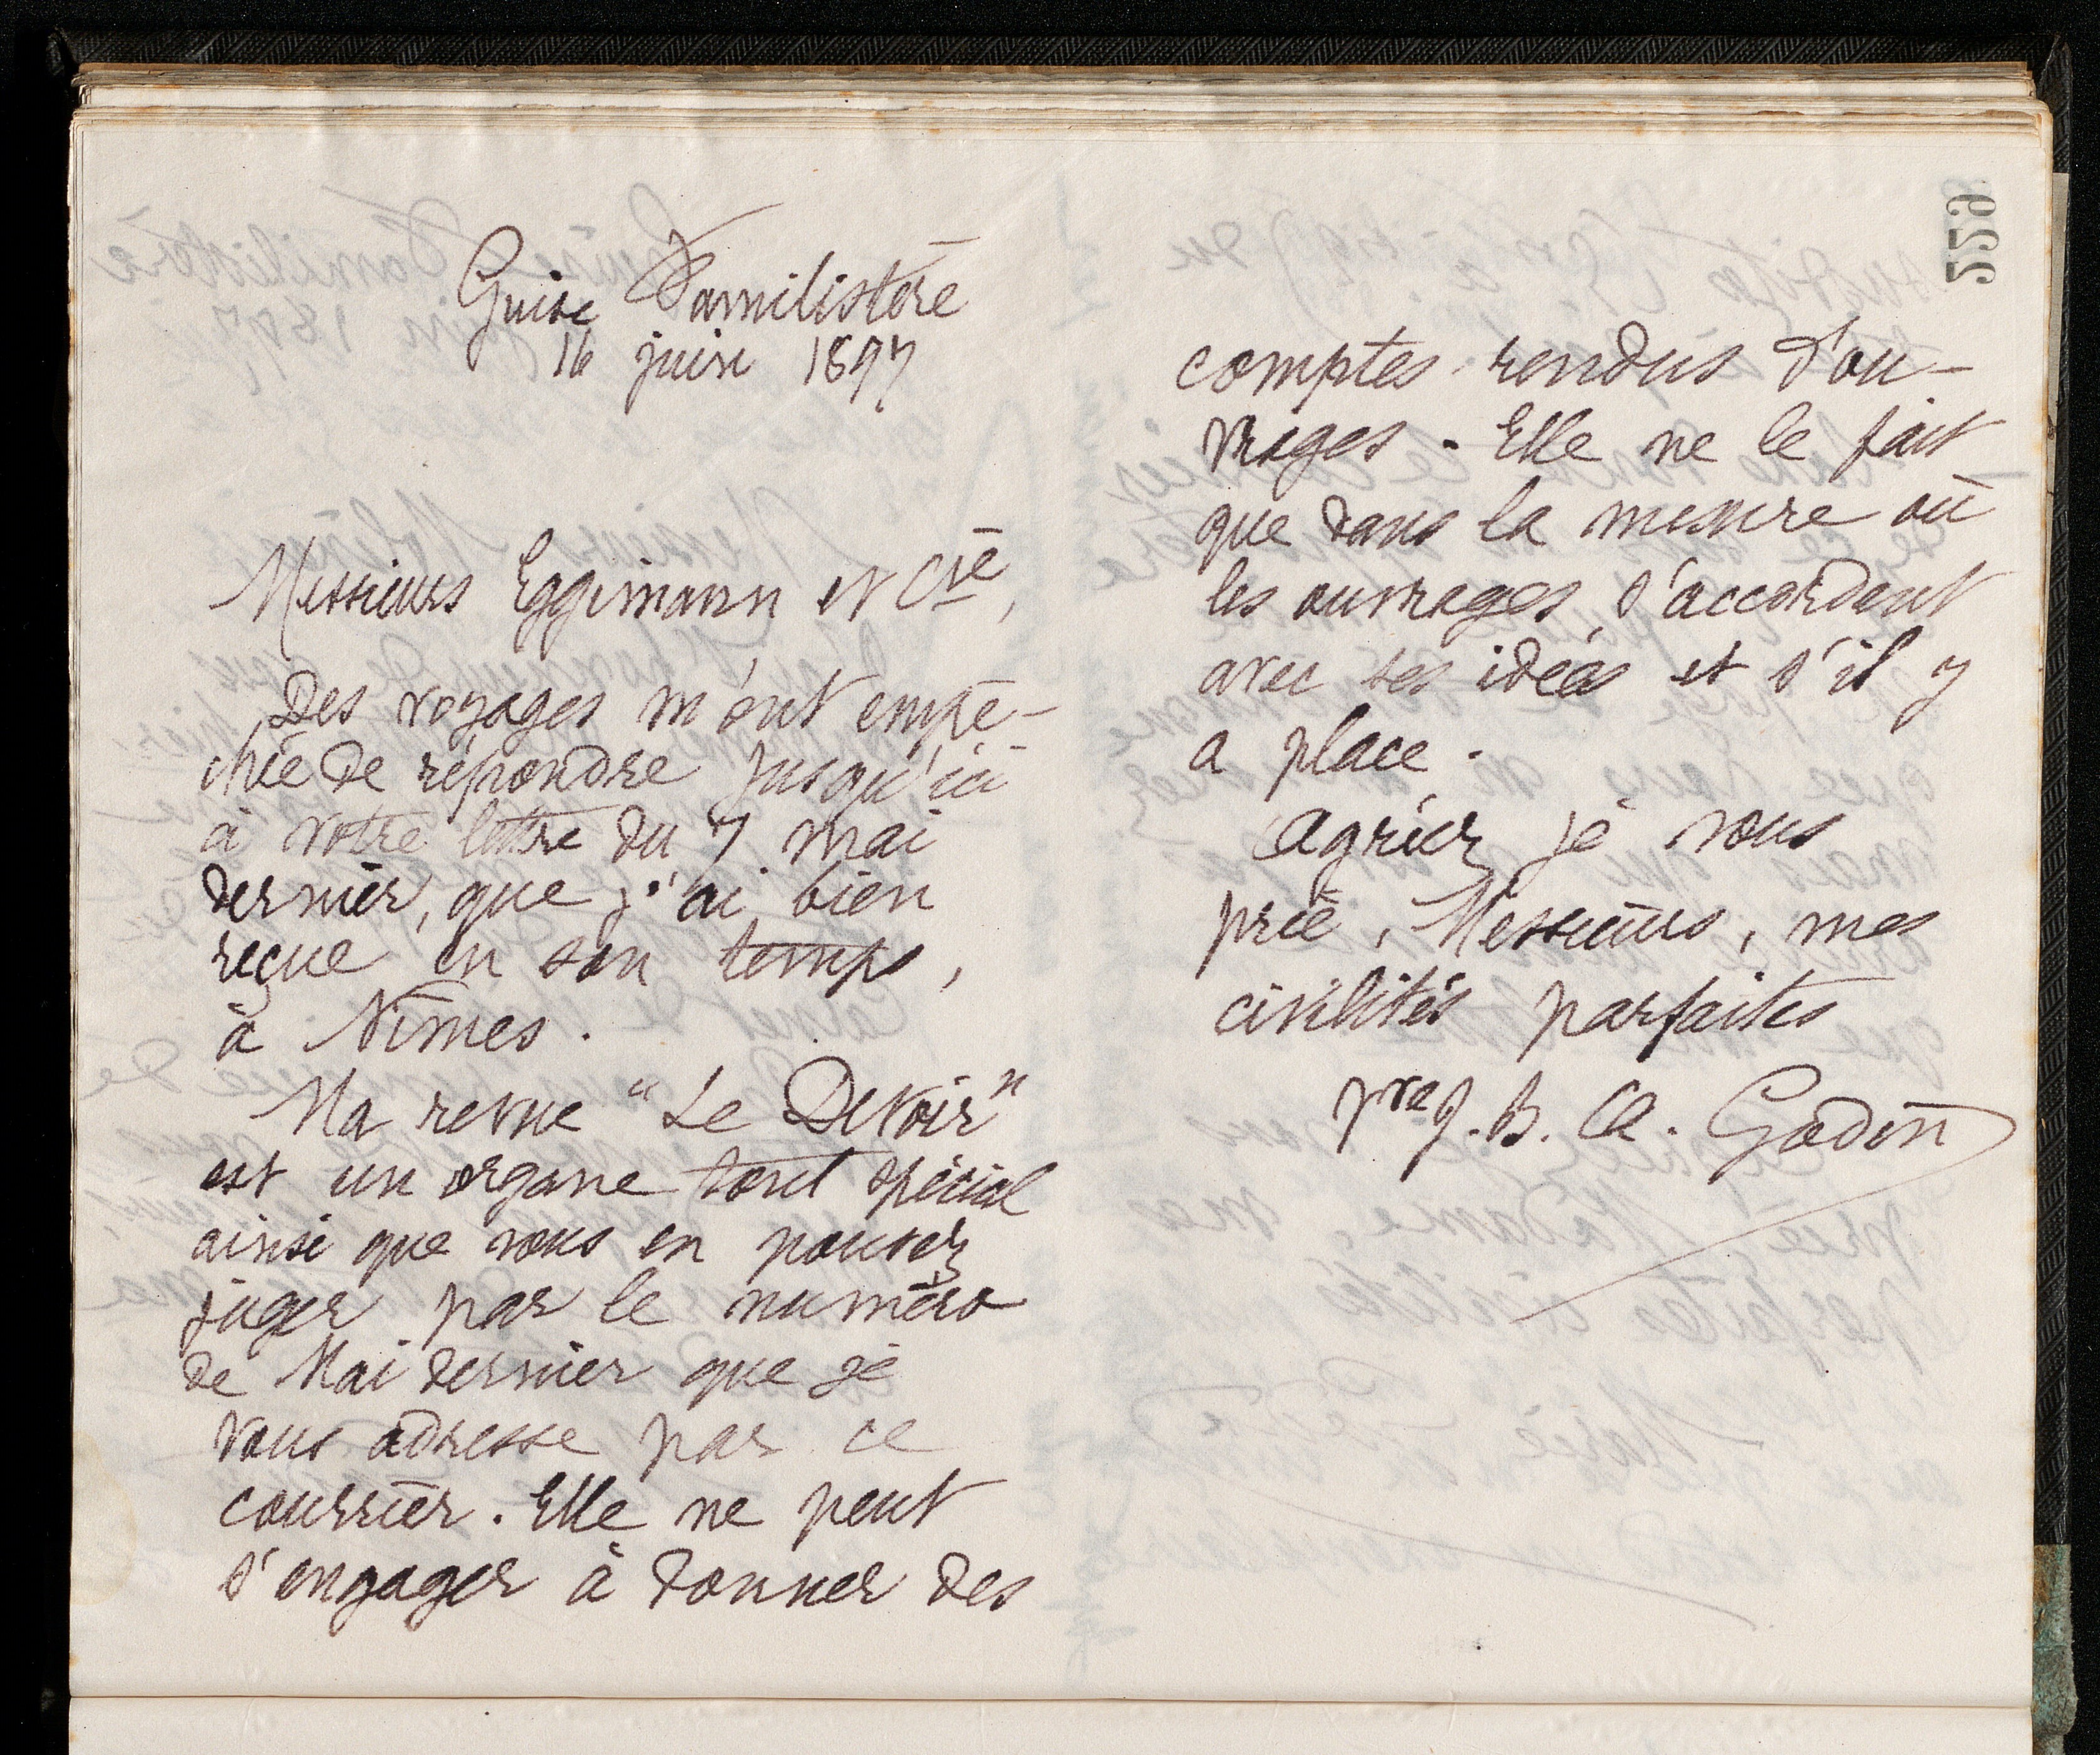 Guise Familistère
16 juin 1897
Messieurs Eggimann et Cie,
Des voyages m'ont empê-
chée de répondre jusqu'ici
à votre lettre du 7 mai
dernier, que j'ai bien
reçue en son temps,
à Nîmes.
Ma revue "Le Devoir"
est un organe tout spécial
ainsi que vous en pouvez
juger par le numéro
de Mai dernier que je
vous adresse par ce
courrier. Elle ne peut
s'engager à donner des
229
comptes rendus d'ou-
vrages. Elle ne le fait
que dans la mesure où
les ouvrages s'accordent
avec ses idées et s'il y
a place.
Agréez je vous
prie, Messieurs, mes
civilités parfaites
Vve J. B. A. Godin